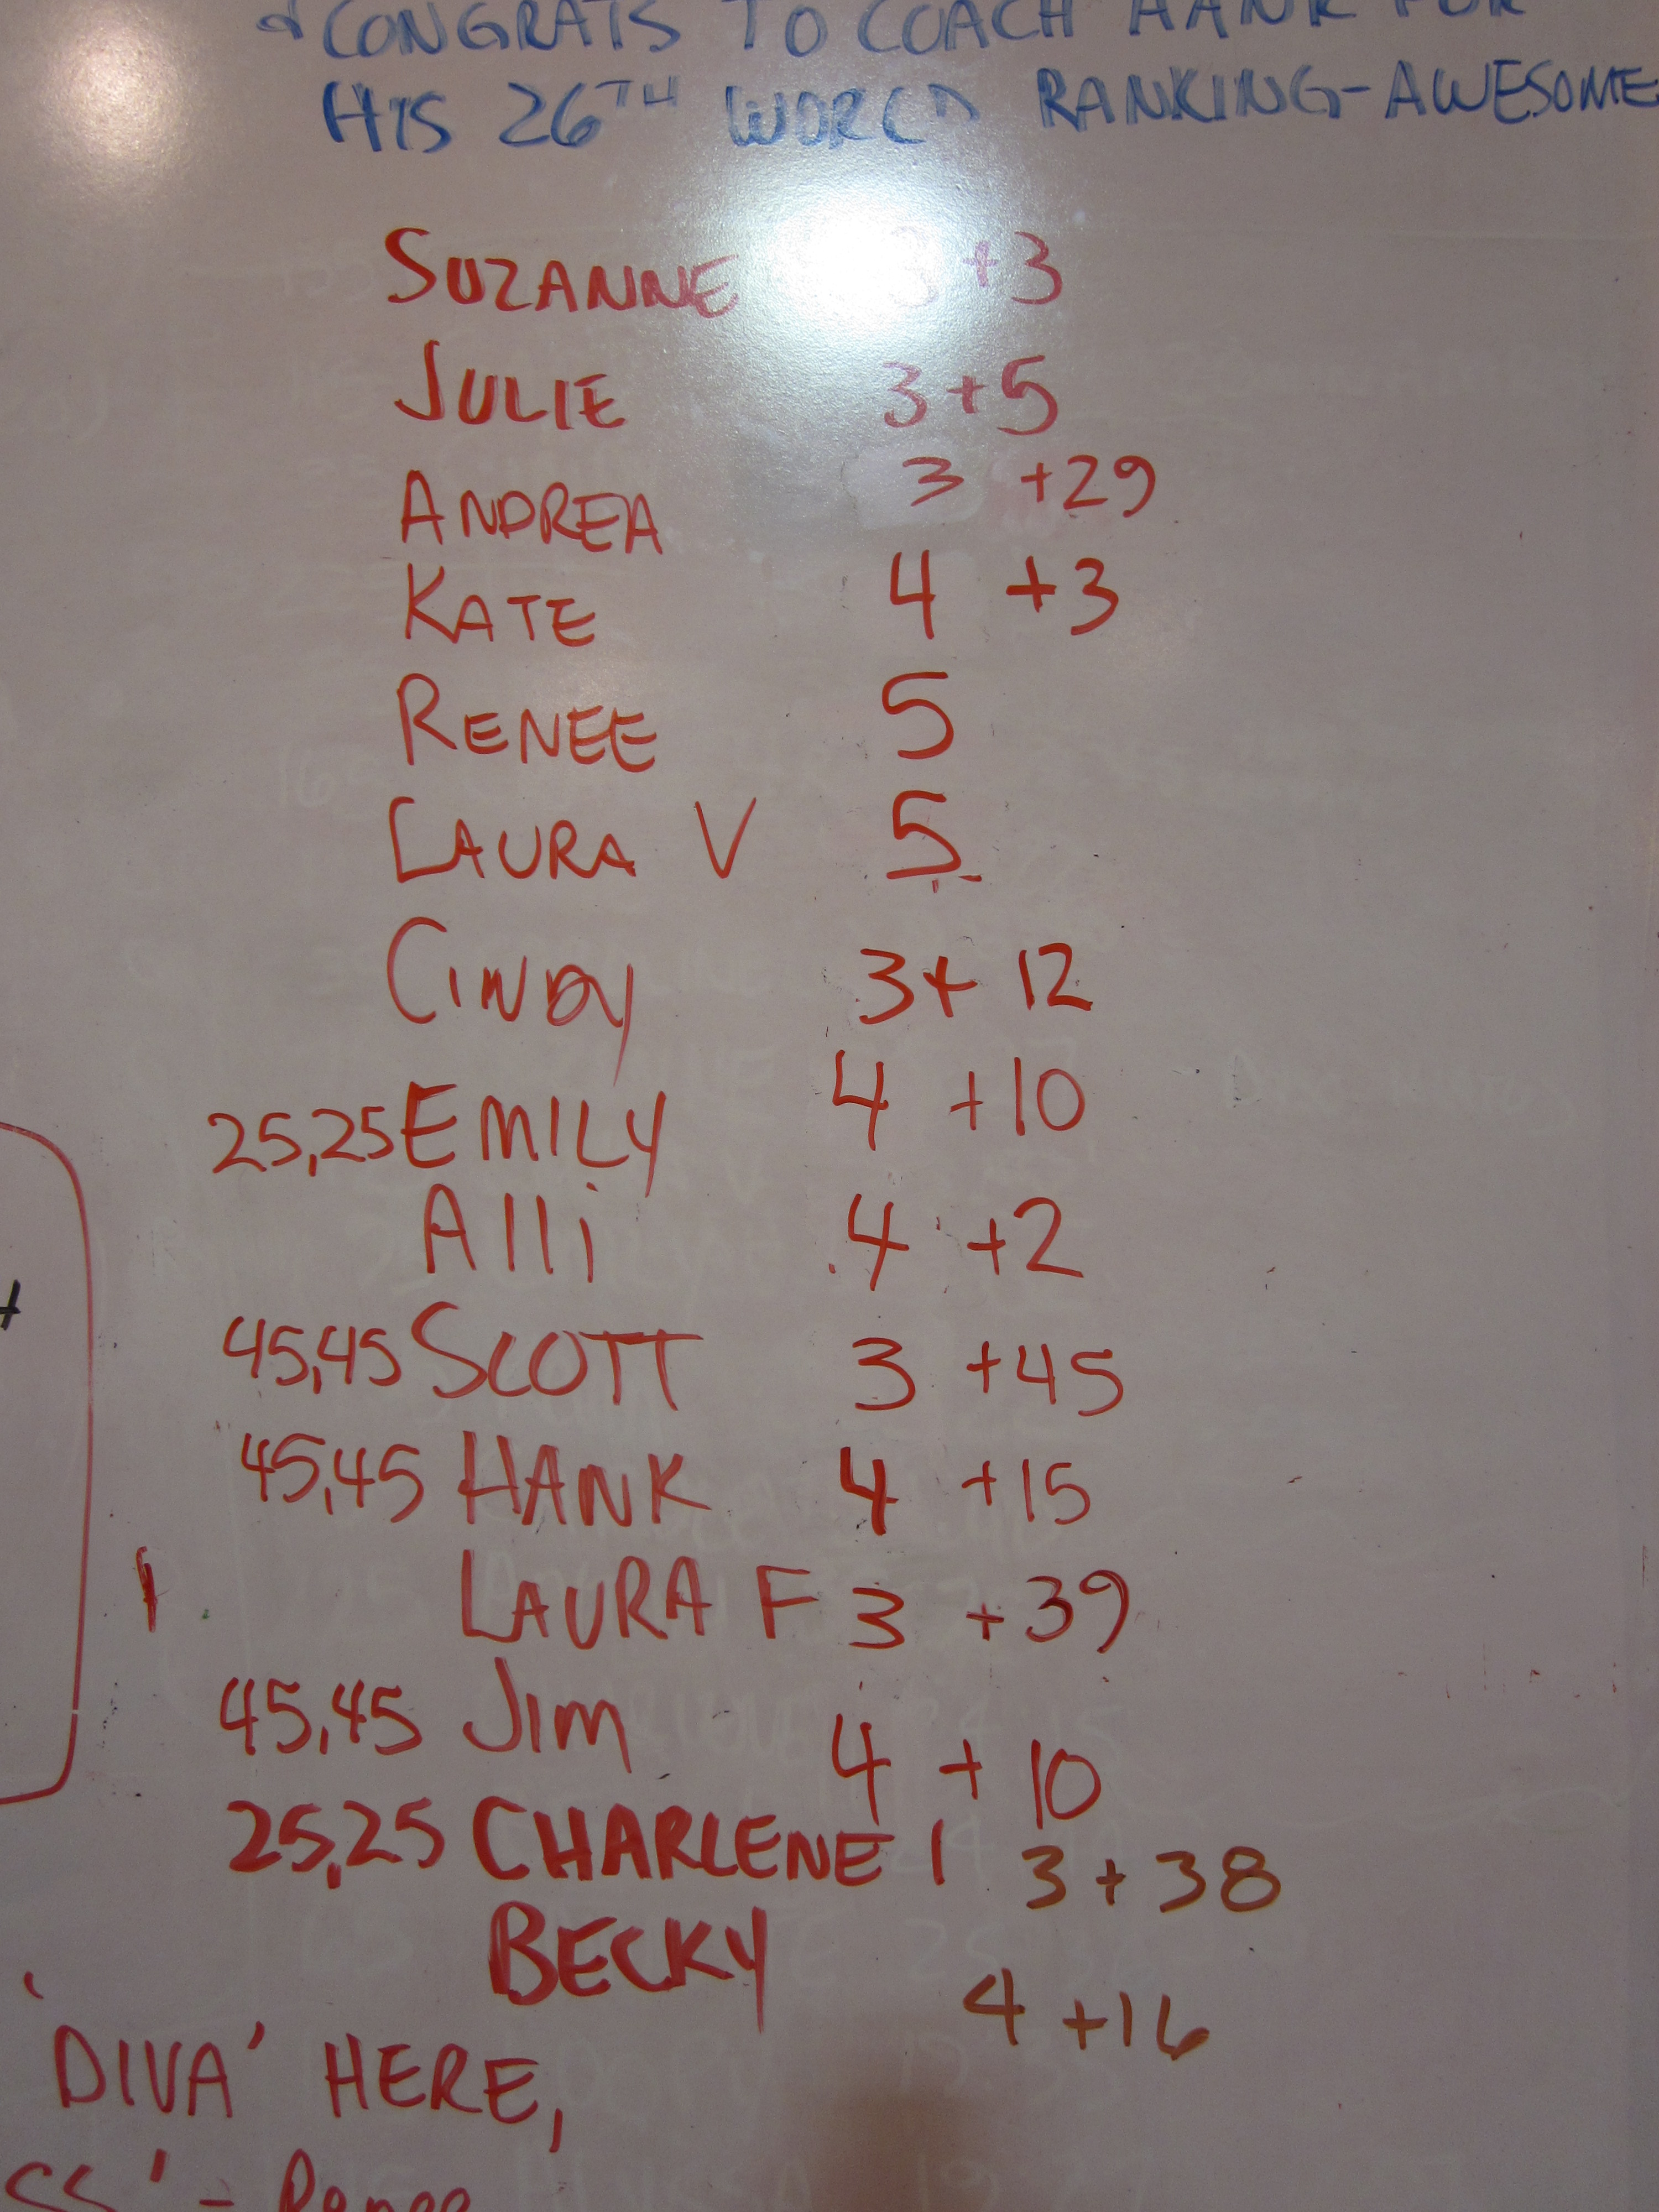 & CONGRATS TO COACH HANK FOR
HIS 26TH WORLD RANKING-AWESOME
SUZANNE 3 +3
JULIE 3+5
ANDREA 3 +29
KATE 4 +3
RENEE 5
LAURA V 5
CINDY 3+ 12
25,25 EMILY 4 +10
Alli 4 +2
45,45 SCOTT 3 +45
45,45 HANK 4 +15
LAURA F 3 +39
45,45 JIM 4 + 10
25,25 CHARLENE 1 3 + 38
BECKY 4 +16
'DIVA' HERE,
SS' - Renee